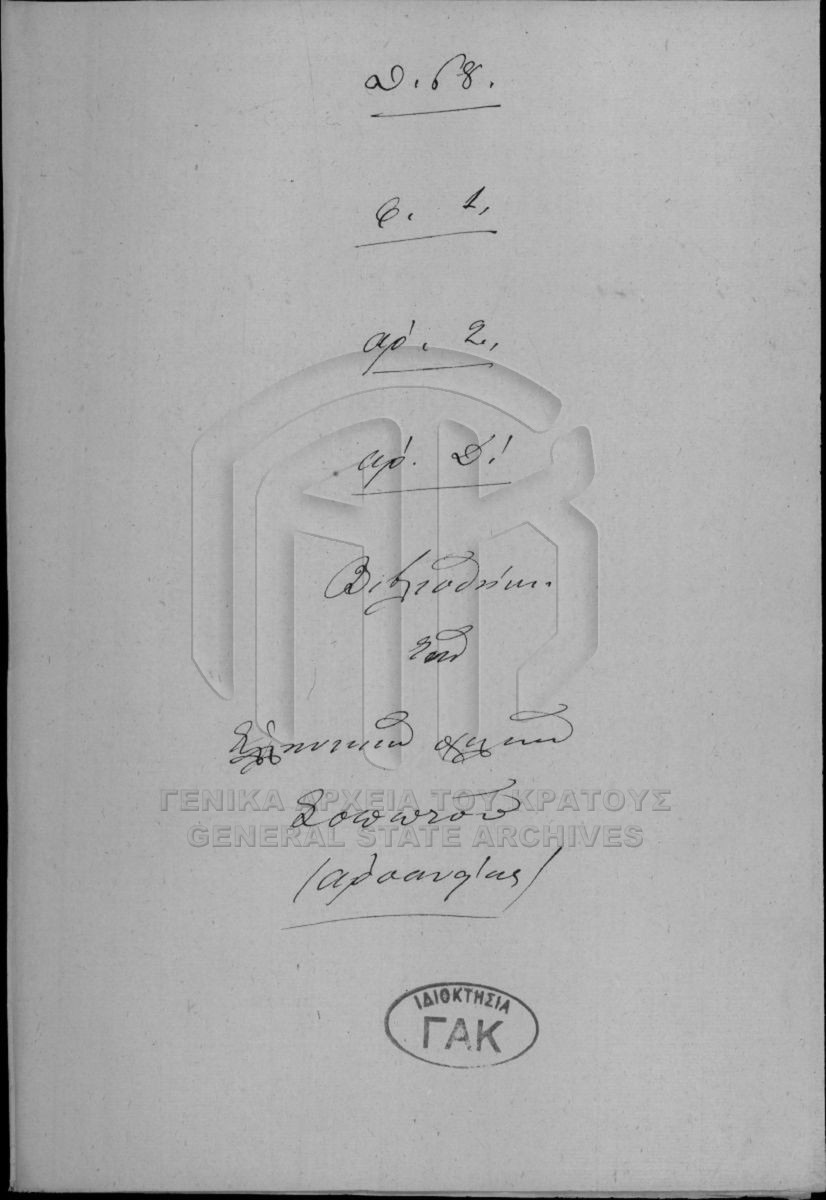 Δ. 68.
Φ. 1,
αρ. 2,
αρ. Δ!
Βιβλιοθήκη
τοῦ
Ἑλληνικοῦ σχολ.
Σοπωτοῦ
(Ἀροανείας)
ΓΕΝΙΚΑ ΑΡΧΕΙΑ ΤΟΥ ΚΡΑΤΟΥΣ
GENERAL STATE ARCHIVES
ΙΔΙΟΚΤΗΣΙΑ
ΓΑΚ